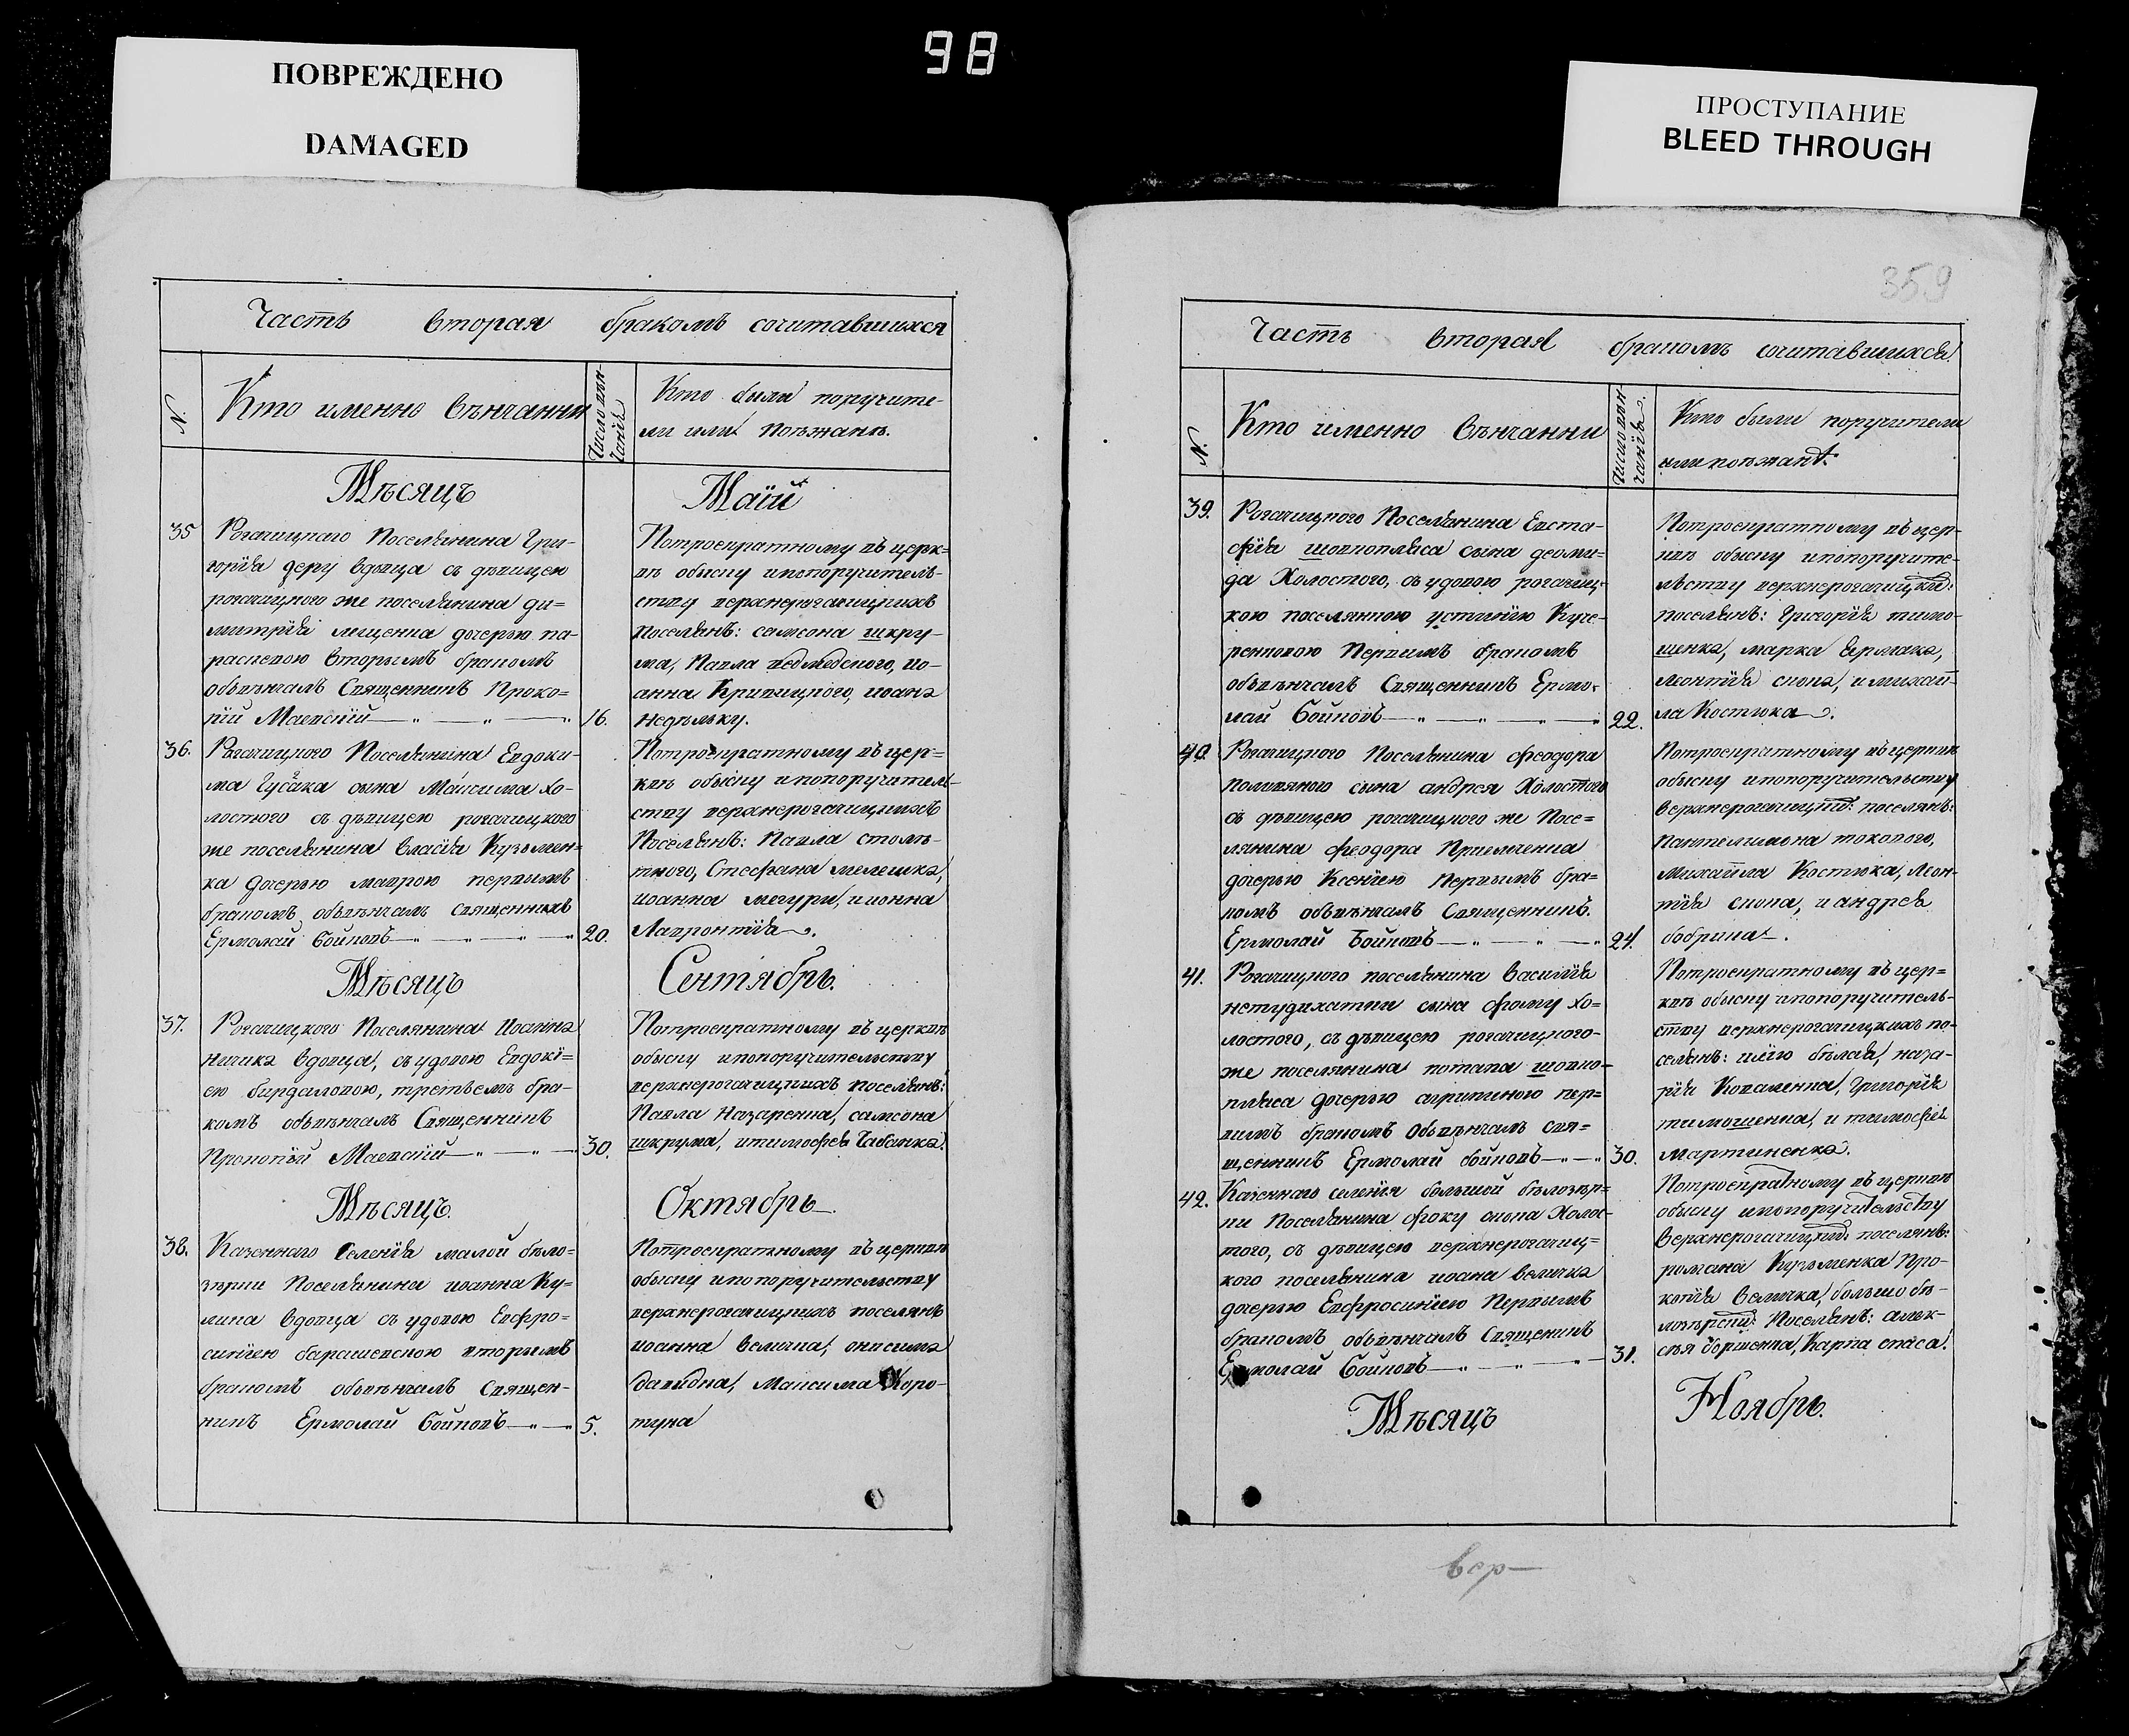 98
ПОВРЕЖДЕНО
DAMAGED
ПРОСТУПАНИЕ
BLEED THROUGH
Часть вторая бракомъ сочитавшихся
N.
Кто именно вѣнчанни
Число вѣн-
чанія
Кто были поручите-
ли или поѣжанѣ.
Мѣсяцъ
Маій
35
Рогачицкаго Поселянина Гри-
горія деру вдовца съ дѣвицею
рогачицкого же поселянина ди=
митрія лященка дочерью па-
раскевою вторымъ бракомъ
обвѣнчалъ Священникъ Проко=
пій Маевскій
16.
Потроекратному въ церк=
вѣ обыску ипопоручитель-
ству верхнерогачицкихъ
поселянъ: самсона шкру-
ма, Павла ведмедского, ио-
анна Кривицкого, иоана
недѣльку.
36.
Рогачицкого Поселянина Евдоки-
ма Гусака сына Максима хо-
лостого съ дѣвицею рогачицкого
же поселянина власія Кузьмен=
ка дочерью маврою первымъ
бракомъ обвѣнчалъ священникъ
Ермолай Бойковъ
20.
Потроекратному въ цер=
квѣ обыску ипопоручитель-
ству верхнерогачицкихъ
Поселянъ: Павла столѣ-
тного, Стефана мелешка,
иоанна мегури, ионна
Лавронтія.
Мѣсяцъ
Сентябрь.
37.
Рогачицкого Поселянина Иоанна
ничика вдовца, съ удовою Евдокі=
ею бирдаловою, третьемъ бра-
комъ обвѣнчалъ Священникъ
Прокопій Маевскій
30.
Потроекратному въ церквѣ
обыску ипопоручительству
верхнерогачицкихъ поселянъ:
Павла Назаренка, самсона
шкрума, итимофея Чабанка.
Мѣсяцъ.
Октябрь
38.
Казеннаго Селенія малой бѣло=
зѣрки Поселянина иоанна Ку=
лика вдовца съ удовою Евфро=
синіею барашевскою вторымъ
бракомъ обвѣнчалъ Священ-
никъ Ермолай Бойковъ
5.
Потроекратному въ церквѣ
обыску ипопоручительству
верхнерогачицкихъ поселянъ
иоанна величка, онисима
давидка, Максима Коро-
туна
359
Часть вторая бракомъ сочитавшихся.
N.
Кто именно вѣнчанни
Число вѣн-
чанія.
Кто были поручители
или поѣжанѣ.
39.
Рогачицкого Поселянина Евста-
фія шовкопляса сына деоми=
да Холостого, съ удовою рогачиц-
кою поселянкою устинію Куче-
ренковою Первимъ бракомъ
обвѣнчалъ Священникъ Ермо-
лай Бойковъ
22.
Потроекратному въ цер-
квѣ обыску ипопоручите-
льству верхнерогачицкой:
поселянъ: Григорія тимо-
шенка, марка Ермака,
леонтія скопа, и михай-
ла Костюка.
40.
Рогачицкого Поселянина Феодора
поливяного сына андрея Холостого
съ дѣвицею рогачицкого же Посе=
лянина феодора Приемченка
дочерью Ксеніею Первымъ бра=
комъ обвѣнчалъ Священникъ.
Ермолай Бойковъ
24.
Потроекратному въ церквѣ
обыску ипопоручительству
верхнерогачицкой: поселянъ:
Пантелимона токового,
михайла Костюка, Леон-
тія скопа, и андрея
бобрика.
41.
Рогачицкого поселянина василія
нетудихатки сына фому хо-
лостого, съ дѣвицею рогачицкого-
же поселянина потапа шовко-
пляса дочерью агрипиною пер-
вимъ бракомъ обвѣнчалъ свя=
щенникъ Ермолай бойковъ
30.
Потроекратному въ цер=
квѣ обыску ипопоручитель-
ству верхнерогачицкихъ по-
селянъ: илію бѣлая, наза-
рія Коваленка, Григорія
тимошенка, и тимофея
мартиненка.
42.
Казеннаго селенія большой бѣлозѣр=
ки Поселянина фоку скопа Холос-
того, съ дѣвицею верхнерогачиц=
кого поселянина иоана величка
дочерью Евфросиніею Первымъ
бракомъ обвѣнчалъ Священикъ
Ермолай Бойковъ
31.
Потроекратному въ церквѣ
обыску ипопоручительству
верхнерогачицкой: поселянъ:
романа Кузьменка Про-
копія величка, большо бѣ-
лозѣрской: Поселянъ: алек-
сѣя борщенка, Карпа спаса.
Мѣсяцъ
Ноябрь.
вер-